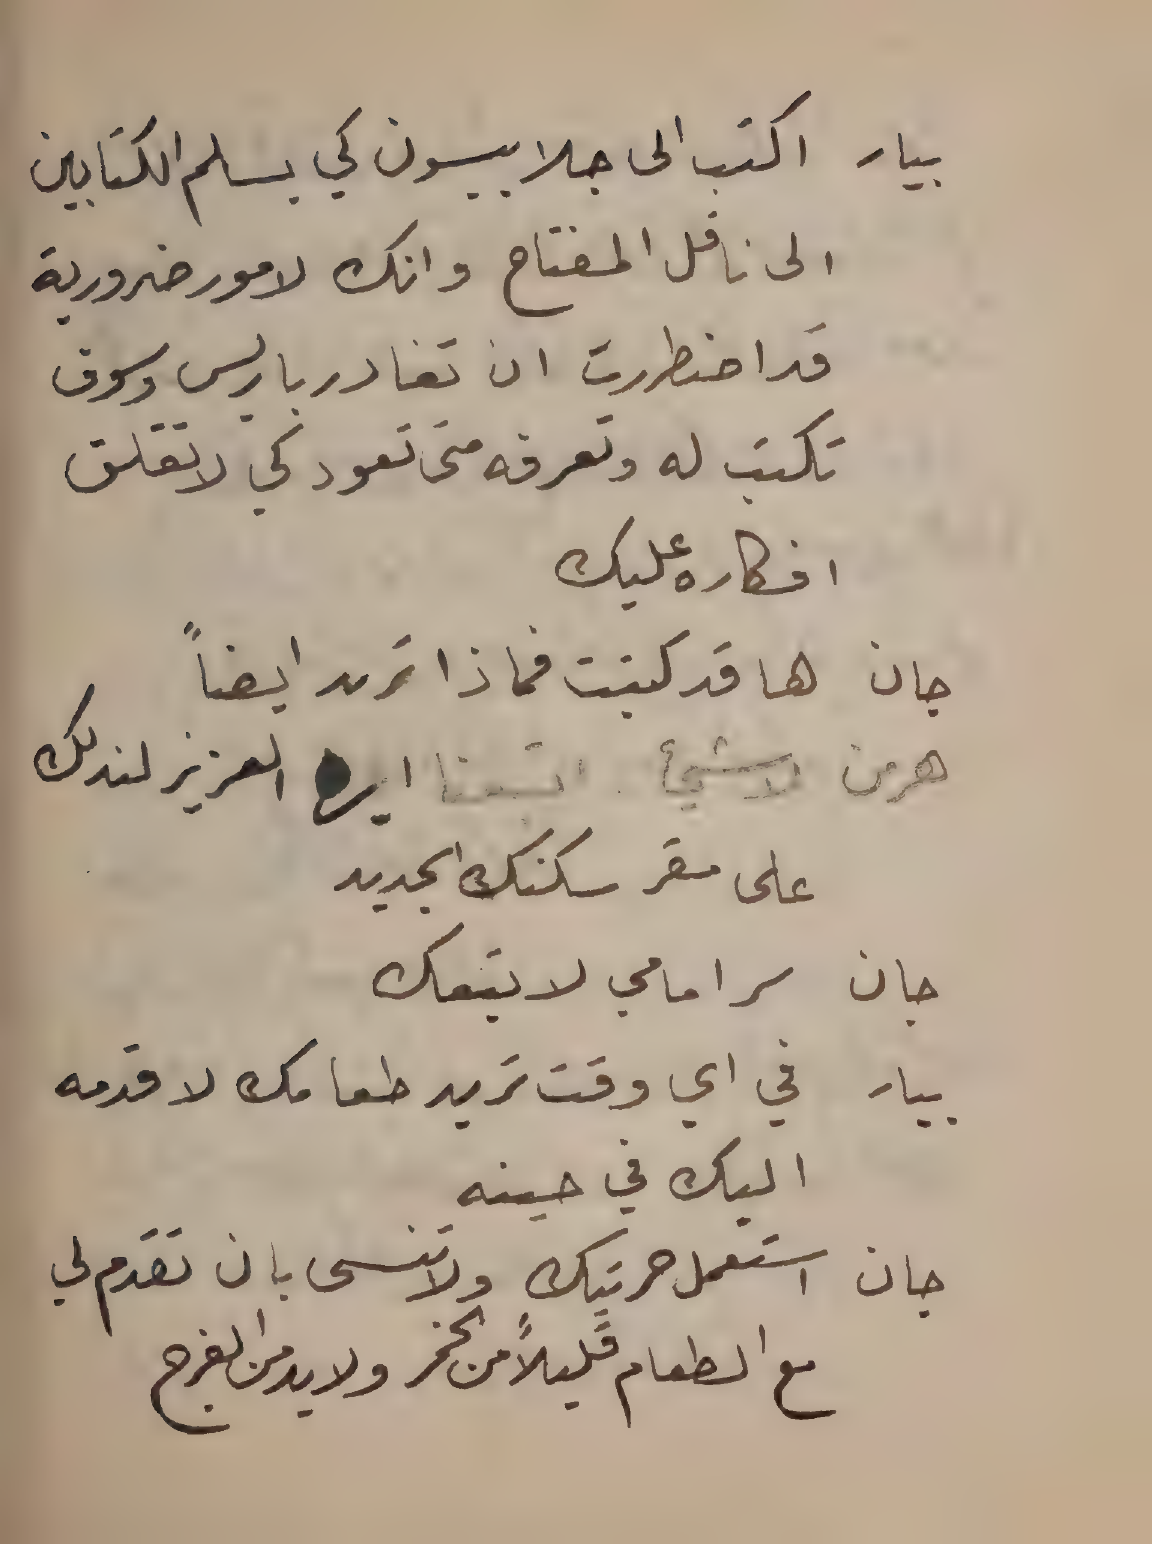 بيار اكتب الى جلابيسون كي يسلم الكتابين
الى ناقل المفتاح وانك لامور ضرورية
قد اضطررت ان تغادر باريس وسوف
تكتب له وتعرفه متى تعود كي لا تقلق
افكاره عليك
جان ها قد كتبت فماذا تريد ايضاً
هرمن لا شيئ . اتبعنا ايها العزيز لندلك
على مقر سكنك الجديد
جان سر امامي لا يتبعك
بيار في اي وقت تريد طعامك لاقدمه
اليك في حينه
جان استعمل حريتك ولا تنسى بان تقدم لي
مع الطعام قليلاً من الخمر ولا بد من الفرج